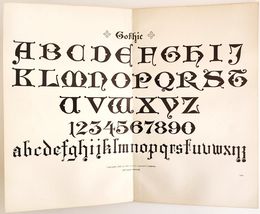 Gothic
ABCDEFGHIJ
KLMNOPQRST
UVWXYZ
1234567890
abcdefghijklmnopqrstuvwxyz